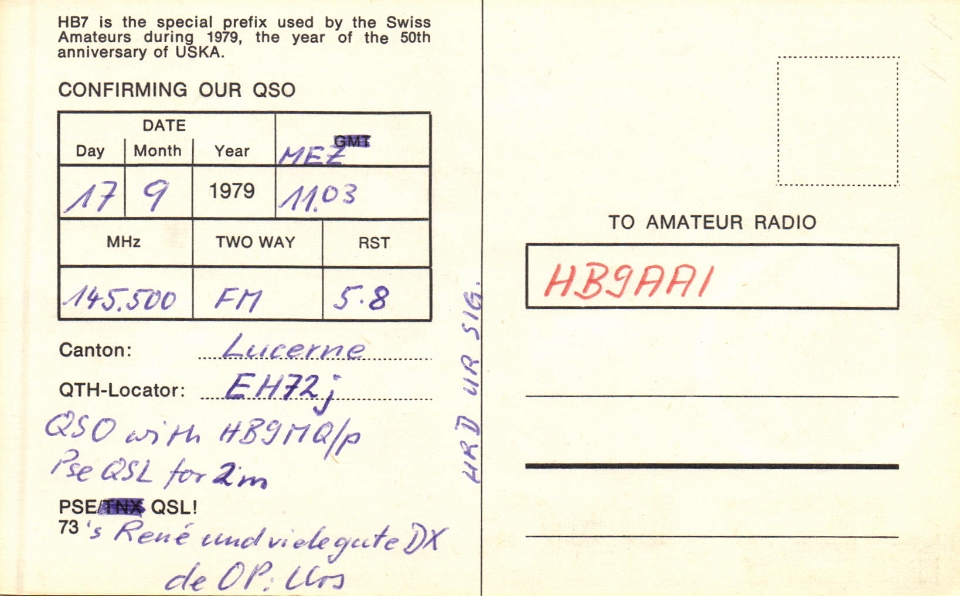 HB7 is the special prefix used by the Swiss
Amateurs during 1979, the year of the 50th
anniversary of USKA.
CONFIRMING OUR QSO
DATE
Day Month Year GMT
MEZ
17 9 1979 11.03
MHz TWO WAY RST
145.500 FM 5.8
Canton: Lucerne
QTH-Locator: EH72j
QSO with HB9MQ/p
Pse QSL for 2m
PSE/TNX QSL!
73's René und viele gute DX
de OP: Urs
HRD UR SIG.
TO AMATEUR RADIO
HB9AAI